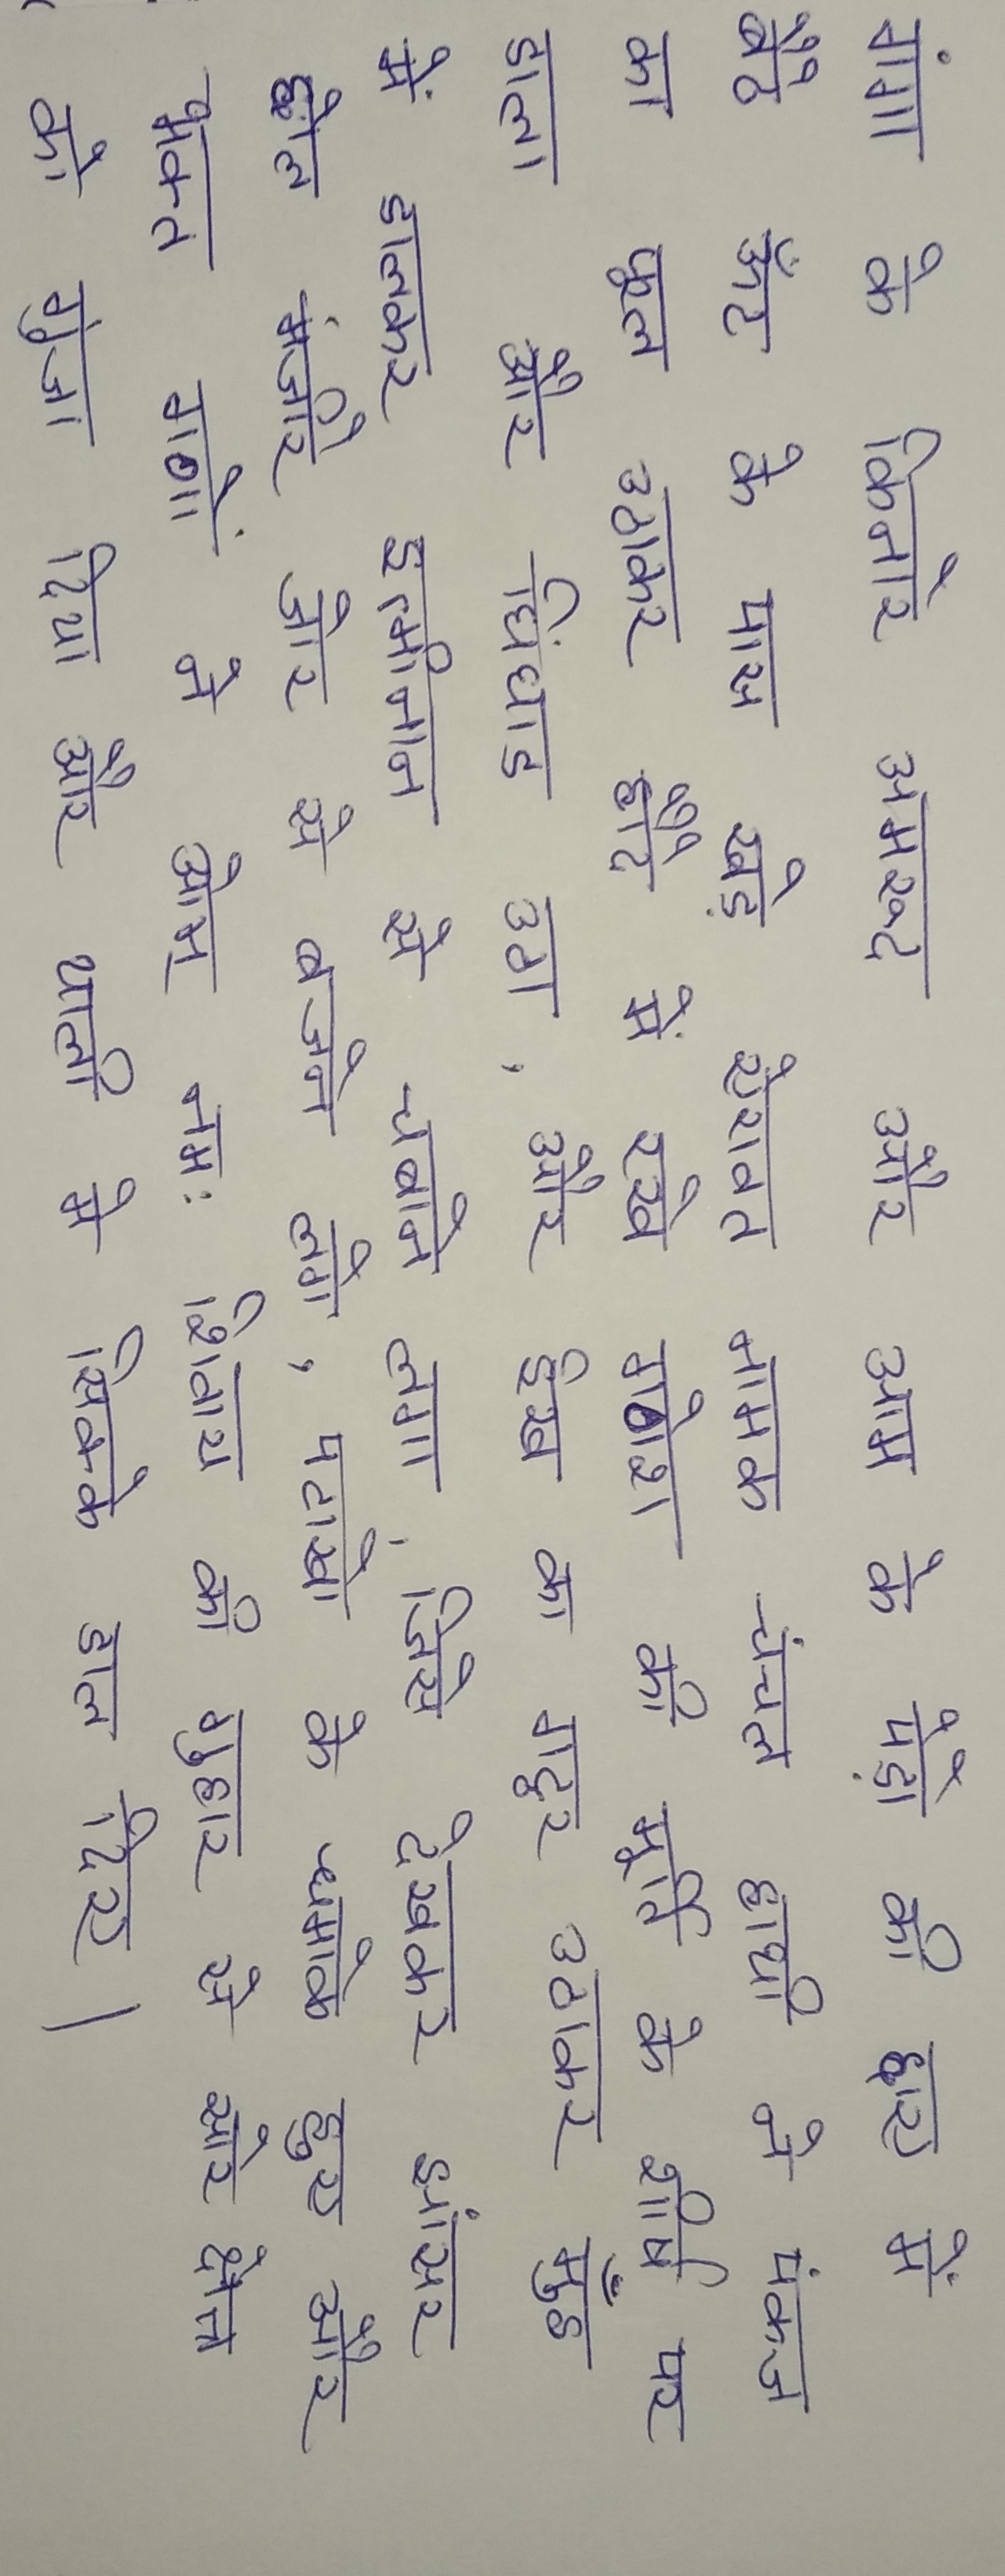 गंगा के किनारे अमरूद और आम के पेड़ो की छाए में
बैठे ऊँट के पास खड़े ऐरावत नामक चंचल हाथी ने पंकज
का फूल उठाकर हौदे में रखे गणेश की मूर्ति के शीर्ष पर
डाला और घिंघाड उठा, और ईख का गट्ठर उठाकर मुँह
में डालकर इत्मीनान से चबाने लगा, जिसे देखकर झांसर
ढोल मंजीरे जोर से बजने लगे, पटाखो के धमाके हुए और
भक्त गणों ने ओम् नमः शिवाय की गुहार से सारे क्षेत्र
को गुंजा दिया और थाली मे सिक्के डाल दिए।